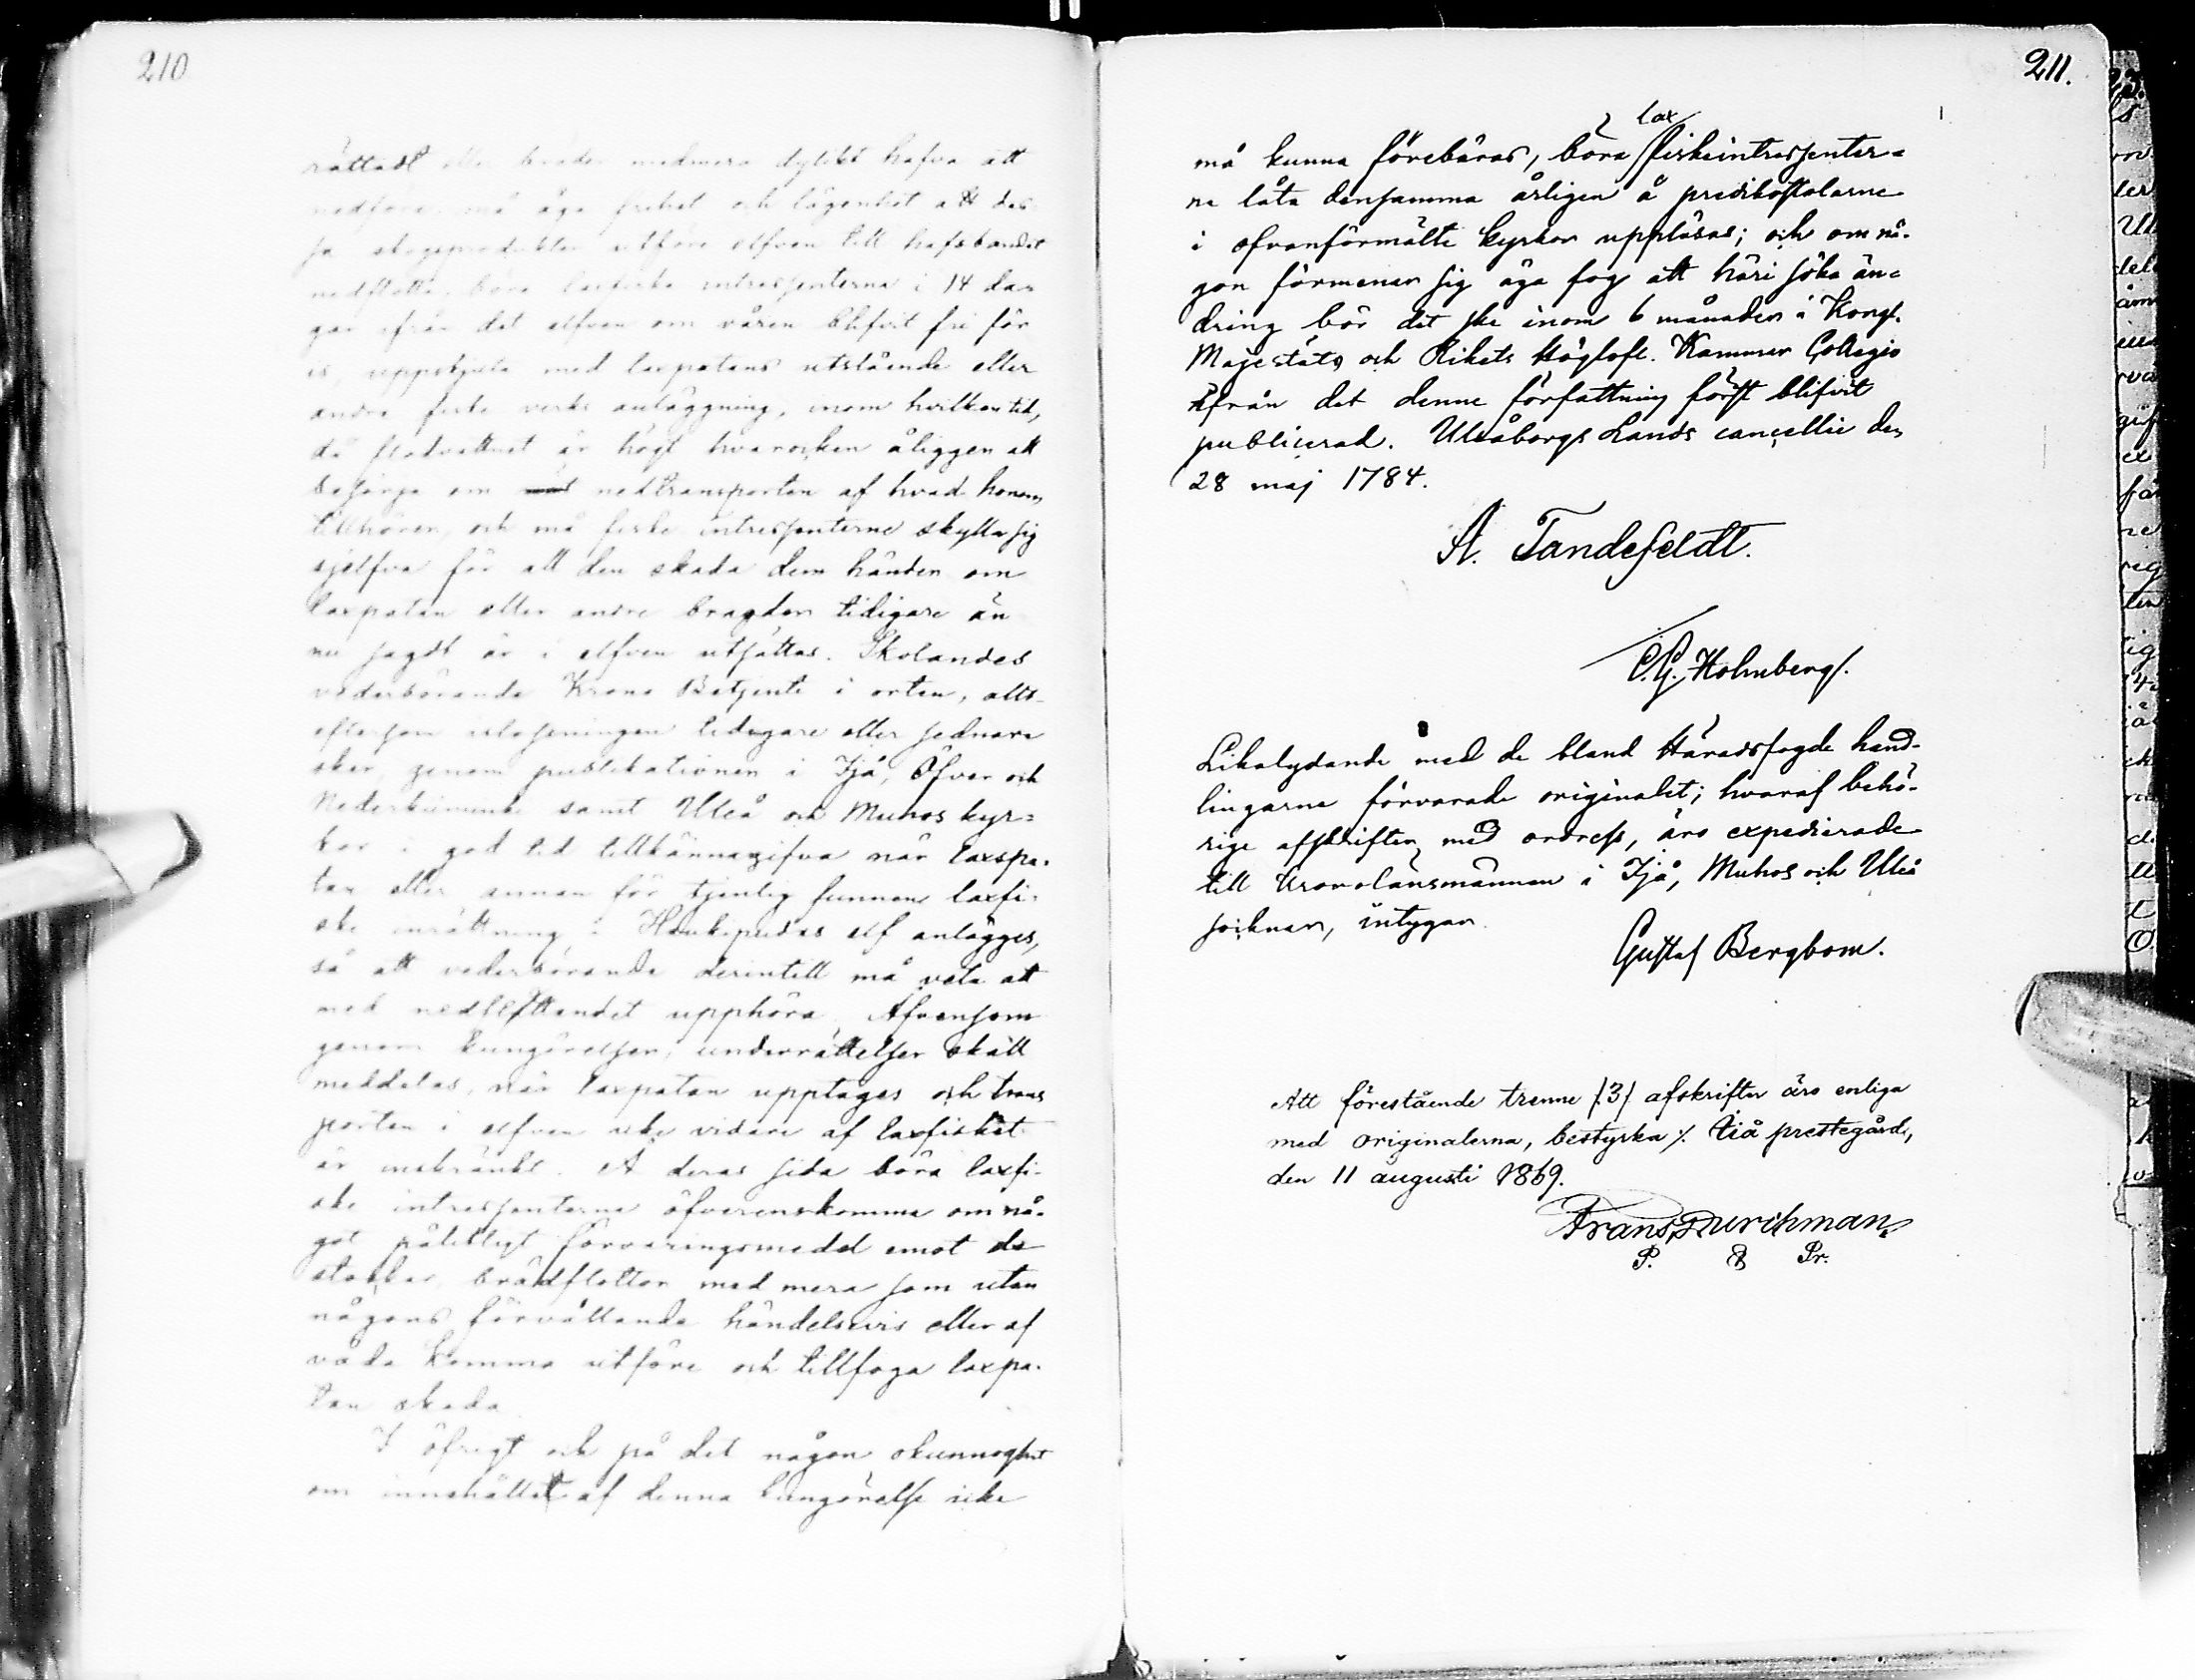 210
rättadt eller bräder medmera dylikt hafva att
nedföra, må äga frihet och lägenhet att des-
sa skogsprodukter utföre elfven till hafsbandet
nedflotta, böra laxfiske intressenterna i 14 da-
gar ifrån det elfven om våren blifvit fri för
is, uppskjuta med laxpatans utslående eller
andra fiske verks anläggning, inom hvilken tid,
då flodvattnet är högt hvarochen åligger att
besörja om nedtransporten af hvad honom
tillhörer, och må fiske intressenterne skylla sig
sjelfva för all den skada dem händer om
laxpatan eller andre bragder tidigare än
nu sagdt är i elfven utsättas. Skolandes
vederbörande Krono Betjente i orten, allt-
eftersom islossningen tidigare eller sednare
sker, genom publikationen i Ijå, Öfver och
Nederkiiminki samt Uleå och Muhos kyr-
kor i god tid tillkännagifva när laxpa-
tan eller annan för tjenlig funnen laxfi-
ske inrättning i Haukipudas elf anlägges,
så att vederbörande derintill må veta att
med nedflottandet upphöra, Äfvensom
genom kungörelser, underrättelser skall
meddelas, när laxpatan upptages och trans
porten i elfven icke vidare af laxfisket
är inskränkt. Å deras sida böra laxfi-
ske intressenterna öfverenskomma om nå-
got påliteligt förvaringsmedel emot de
stockar, brädflottor med mera som utan
någons förvållande händelsevis eller af
våda komma utföre och tillfoga laxpa-
tan skada
I öfrigt och på det någon okunnoghet
om innehållet af denna kungörelse icke
211.
lax
må kunna förebäras, böra fiskeintressenter-
ne låta densamma årligen å predikostolarne
i ofvanförmälte kyrkor uppläsas; och om nå-
gon förmenar sig äga fog att häri söka än-
dring bör det ske inom 6 månader i Kongl.
Majestäts och Rikets Höglofl. Kammar Collegio
ifrån det denne författning först blifvit
publicerad. Uleåborgs Lands cancellie den
28 maj 1784.
A. Tandefeldt.
C.G. Holmberg.
Likalydande med de bland Häradsfogde hand-
lingarne förvarade originalet; hvaraf behö-
rige afskrifter med ordress, äro expedierade
till Kronolänsmännen i Ijå, Muhos och Uleå
socknar, intygar
Gustaf Bergbom.
Att förestående trenne /3/ afskrifter äro enliga
med originalerna, bestyrka ⁒ Iiå prestegård,
den 11 augusti 1869.
Frans Durchman
P. & Pr.